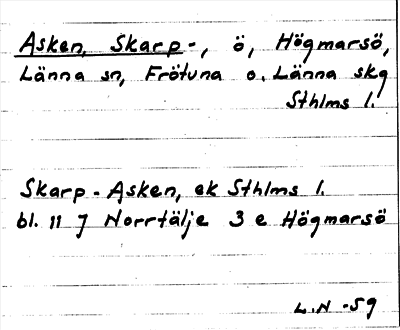 Asken, Skarp-, ö, Högmarsö,
Länna sn, Frötuna o. Länna skg
Sthlms l.
Skarp-Asken, ek Sthlms l.
bl. 11 J Norrtälje 3 e Högmarsö
L.N -59